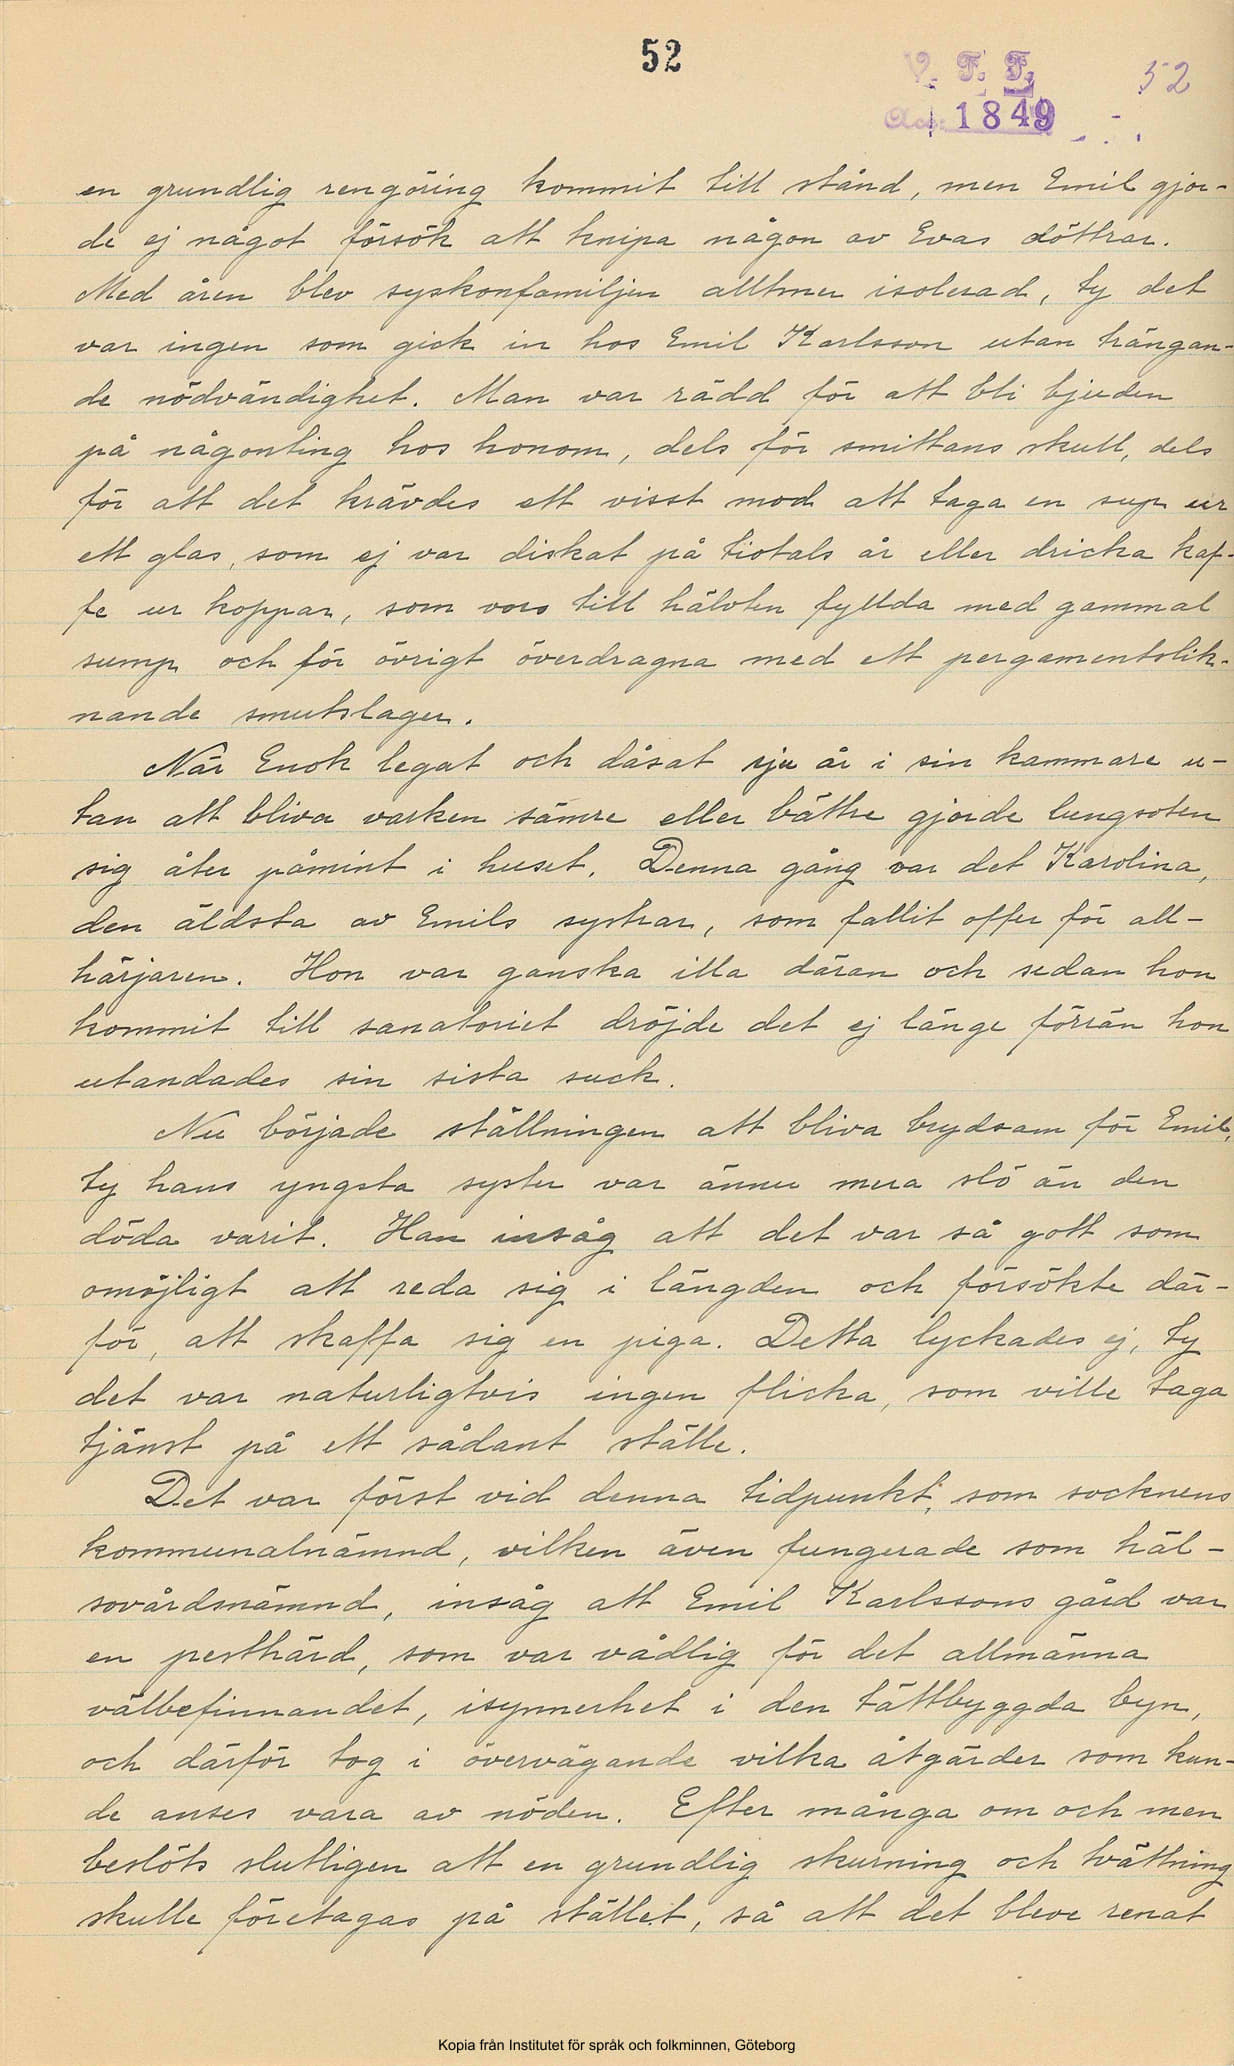 52
V. F. F.
52
Acc. 1849
en grundlig rengöring kommit till stånd, men Emil gjor-
de ej något försök att knipa någon av Evas döttrar.
Med åren blev syskonfamiljen alltmer isolerad, ty det
var ingen som gick in hos Emil Karlsson utan trängan-
de nödvändighet. Man var rädd för att bli bjuden
på någonting hos honom, dels för smittans skull, dels
för att det krävdes ett visst mod att taga en sup ur
ett glas, som ej var diskat på tiotals år eller dricka kaf-
fe ur koppar, som voro till hälvten fyllda med gammal
sump och för övrigt överdragna med ett pergamentslik-
nande smutslager.
När Enok legat och dåsat sju år i sin kammare u-
tan att bliva varken sämre eller bättre gjorde lungsoten
sig åter påmint i huset. Denna gång var det Karolina,
den äldsta av Emils systrar, som fallit offer för all-
härjaren. Hon var ganska illa däran och sedan hon
kommit till sanatoriet dröjde det ej länge förrän hon
utandades sin sista suck.
Nu började ställningen att bliva brydsam för Emil,
ty hans yngsta syster var ännu mera slö än den
döda varit. Han insåg att det var så gott som
omöjligt att reda sig i längden och försökte där-
för, att skaffa sig en piga. Detta lyckades ej, ty
det var naturligtvis ingen flicka, som ville taga
tjänst på ett sådant ställe.
Det var först vid denna tidpunkt, som socknens
kommunalnämnd, vilken även fungerade som häl-
sovårdsnämnd, insåg att Emil Karlssons gård var
en pesthärd, som var vådlig för det allmänna
välbefinnandet, isynnerhet i den tättbyggda byn,
och därför tog i övervägande vilka åtgärder som kun-
de anses vara av nöden. Efter många om och men
beslöts slutligen att en grundlig skurning och tvättning
skulle företagas på stället, så att det bleve renat
Kopia från Institutet för språk och folkminnen, Göteborg